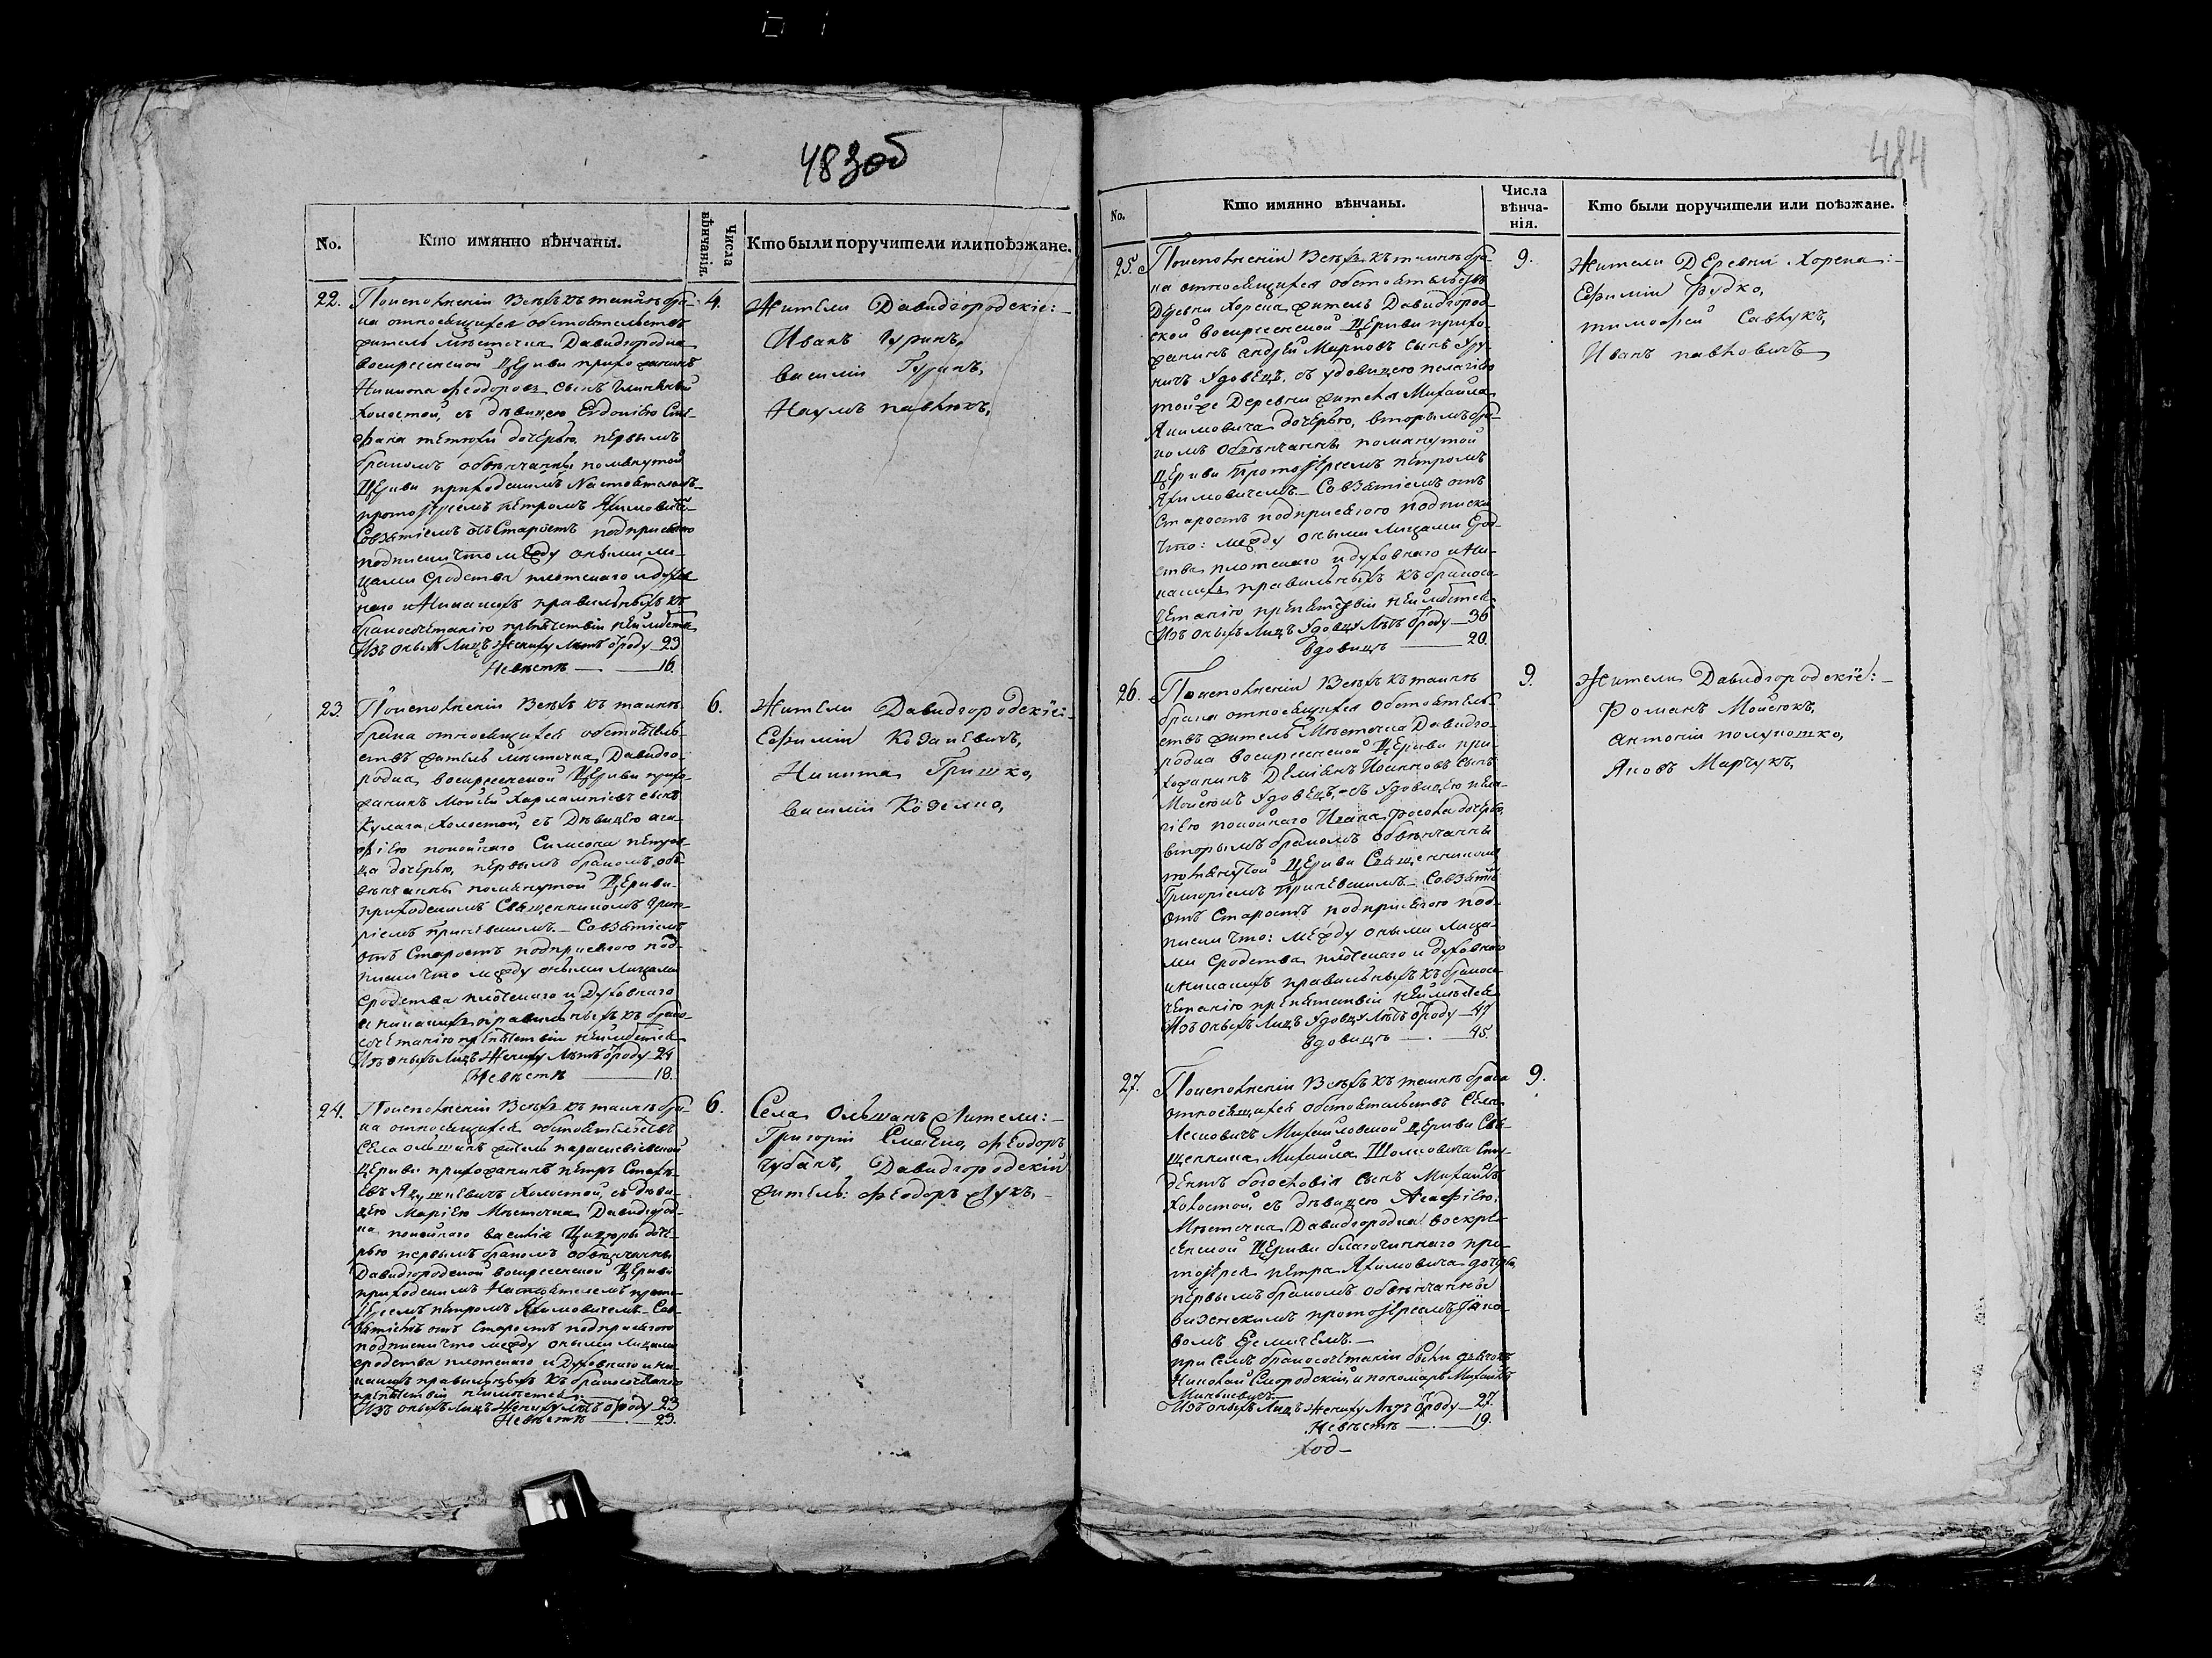 483об
No.
Кто имянно вѣнчаны.
Числа вѣнчанія.
Кто были поручители или поѣзжане.
22.
По исполненіи всѣхъ къ таинѣ бра-
ка относящихся обстоятельствъ
житель мѣстечка Давидгородка
воскресенской Церкви прихожанинъ
Никита Феодоровъ сынъ
холостой, съ дѣвицею Евдокіею Сте-
фана дочерью, первымъ
бракомъ обвѣнчанны помянутой
Церкви приходскимъ Настоятелемъ
протоіереемъ петромъ Якимовичемъ
Совзятіемъ отъ Старостъ подприсягою
подписки что между оными ли-
цами сродства плотскаго и духов-
наго и никакихъ правильныхъ къ
бракосочетанію препятствій неимѣется
Изъ оныхъ Лицъ Жениху Лѣтъ отроду 23
Невѣстѣ — 16.
4.
Жители Давидгородскіе:
Иванъ Гуринъ,
василій Гуринъ,
Наумъ павлюкъ,
23.
По исполненіи всѣхъ къ таинѣ
брака относящихся обстоятель-
ствъ житель мѣстечка Давидго-
родка, воскресенской Церкви прихо-
жанинъ Моисей Харлампіевъ сынъ
Кулага, холостой, съ Дѣвицею ага-
фіею покойнаго Симеона
дочерью, первымъ бракомъ об-
вѣнчанны помянутой Церкви
приходскимъ Священникомъ Григо-
ріемъ Совзятіемъ
отъ Старостъ подприсягою под-
писки что между оными Лицами
Сродства плотскаго и Духовнаго
и никакихъ правильныхъ къ брако-
сочетанію препятствій неимѣется
Изъ оныхъ Лицъ Жениху Лѣтъ отроду 24
Невѣстѣ — 18.
6.
Жители Давидгородскіе:
Ефимій Козакевичъ,
Никита Гришко,
василій Козелко,
24.
По исполненіи всѣхъ къ таинѣ бра-
ка относящихся обстоятельствъ
Села ольшанъ житель параскевіевской
церкви прихожанинъ петръ
холостой, съ дѣви-
цею Маріею Мѣстечка Давидгород-
ка покойнаго василія доче-
рью первымъ бракомъ обвѣнчанны
Давидгородской воскресенской Церкви
приходскимъ Настоятелемъ прото-
іереемъ петромъ Якимовичемъ Сов-
зятіемъ отъ Старостъ подприсягою
подписки что между оными Лицами
сродства плотскаго и Духовнаго и ни-
какихъ правильныхъ къ бракосочетанію
препятствій неимѣется
Изъ оныхъ Лицъ Жениху Лѣтъ отроду 23
Невѣстѣ — 23.
6.
Села Ольшанъ жители:
Григорій феодоръ
Чубанъ, Давидгородскій
житель: феодоръ Лукъ,
484
No.
Кто имянно вѣнчаны.
Числа вѣнча-нія.
Кто были поручители или поѣзжане.
25.
По исполненіи всѣхъ къ таинѣ бра-
ка относящихся обстоятельствъ
Деревни Хорска житель Давидгород-
ской воскресенской Церкви прихо-
жанинъ андрей Марковъ сынъ
удовецъ, съ удовицею пелагіею
тойже Деревни жителя Михаила
Якимовича дочерью, вторымъ бра-
комъ обвѣнчанны помянутой
Церкви Протоіереемъ петромъ
Якимовичемъ. Совзятіемъ отъ
Старостъ подприсягою подписки
что: между оными Лицами Срод-
ства плотскаго и духовнаго и ни-
какихъ правильныхъ къ бракосо-
четанію препятствій неимѣется
Изъ оныхъ Лицъ Удовцу Лѣтъ отроду 36
вдовицѣ — 20.
9.
Жители Деревни Хорска:
Ефимій Рудко,
тимофей Савчукъ,
Иванъ павловичъ
26.
По исполненіи всѣхъ къ таинѣ
брака относящихся обстоятель-
ствъ житель Мѣстечка Давидго-
родка воскресенской Церкви при-
хожанинъ Деміянъ Иоанновъ сынъ
Мойсюкъ удовецъ, съ удовицею пела-
гіею покойнаго Ивана дочерью,
вторымъ бракомъ обвѣнчанны
помянутой Церкви Священникомъ
Григоріемъ Совзятіемъ
отъ Старостъ подприсягою под-
писки что: между оными Лица-
ми Сродства плотскаго и духовнаго
и никакихъ правильныхъ къ бракосо-
четанію препятствій неимѣется
Изъ оныхъ Лицъ Удовцу Лѣтъ отроду 47
вдовицѣ — 45.
9.
Жители Давидгородскіе:
Романъ Мойсюкъ,
антоній полукошко,
Яковъ Марчукъ,
27.
По исполненіи всѣхъ къ таинѣ брака
относящихся обстоятельствъ Села
Лесковичъ Михайловской церкви Свя-
щенника Михаила Сту-
дентъ богословія сынъ Михаилъ
холостой, съ дѣвицею Агафіею,
Мѣстечка Давидгородка воскре-
сенской Церкви благочиннаго про-
тоіерея петра Якимовича дочерью,
первымъ бракомъ обвѣнчанны
протоіереемъ Іяко-
вомъ
при семъ бракосочетаніи были дьячокъ
Николай Смородскій, и пономарь Михаилъ
Минкевичъ.
Изъ оныхъ Лицъ Жениху Лѣтъ отроду 27.
Невѣстѣ — 19.
9.
ход-